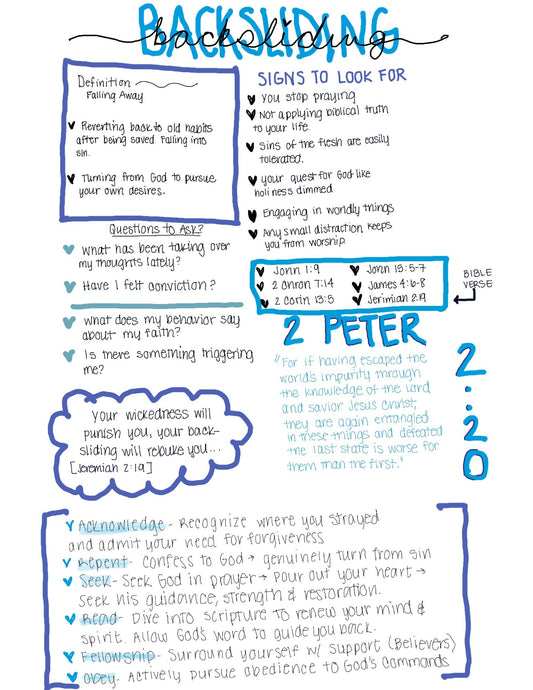 BACKSLIDING
backsliding
Definition
Falling Away
Reverting back to old habits
after being saved. Falling into
sin.
Turning from God to pursue
your own desires.
SIGNS TO LOOK FOR
You stop praying
Not applying biblical truth
to your life.
Sins of the flesh are easily
tolerated.
your quest for God-like
holiness dimmed.
Engaging in worldly things
Any small distraction keeps
you from worship.
Questions to Ask?
What has been taking over
my thoughts lately?
Have I felt conviction?
What does my behavior say
about my faith?
Is there something triggering
me?
John 1:9
2 Chron 7:14
2 Corin 13:5
John 15:5-7
James 4:6-8
Jerimian 2:19
BIBLE
VERSE
2 PETER
2:20
"For if having escaped the
world's impurity through
the knowledge of the Lord
and savior Jesus Christ;
they are again entangled
in these things and defeated
the last state is worse for
them than the first."
Your wickedness will
punish you, your back-
sliding will rebuke you...
[Jeremiah 2:19]
Acknowledge - Recognize where you strayed
and admit your need for forgiveness
Repent - Confess to God → genuinely turn from sin
Seek - Seek God in prayer → Pour out your heart →
seek his guidance, strength & restoration.
Read - Dive into scripture to renew your mind &
spirit. Allow God's word to guide you back.
Fellowship - Surround yourself w/ support (Believers)
Obey - Actively pursue obedience to God's commands